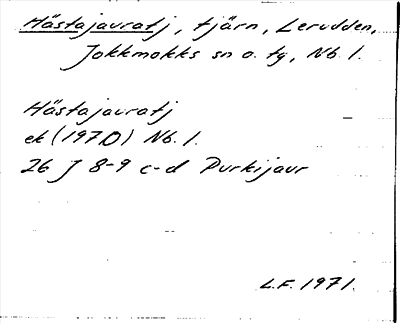 Hästajauratj, tjärn, Lerudden,
Jokkmokks sn o. tg, Nb. l.
Hästajauratj
ek (1970) Nb. l.
26 J 8-9 c-d Purkijaur
L.F. 1971.